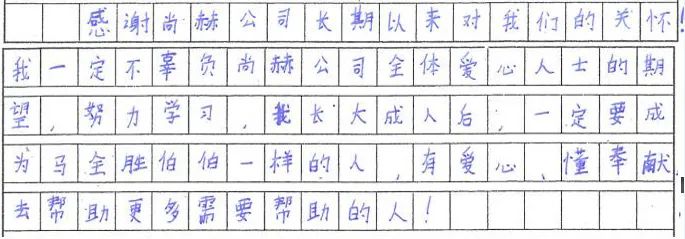 感谢尚赫公司长期以来对我们的关怀!
我一定不辜负尚赫公司全体爱心人士的期
望,努力学习,我长大成人后,一定要成
为马全胜伯伯一样的人,有爱心、懂奉献,
去帮助更多需要帮助的人!